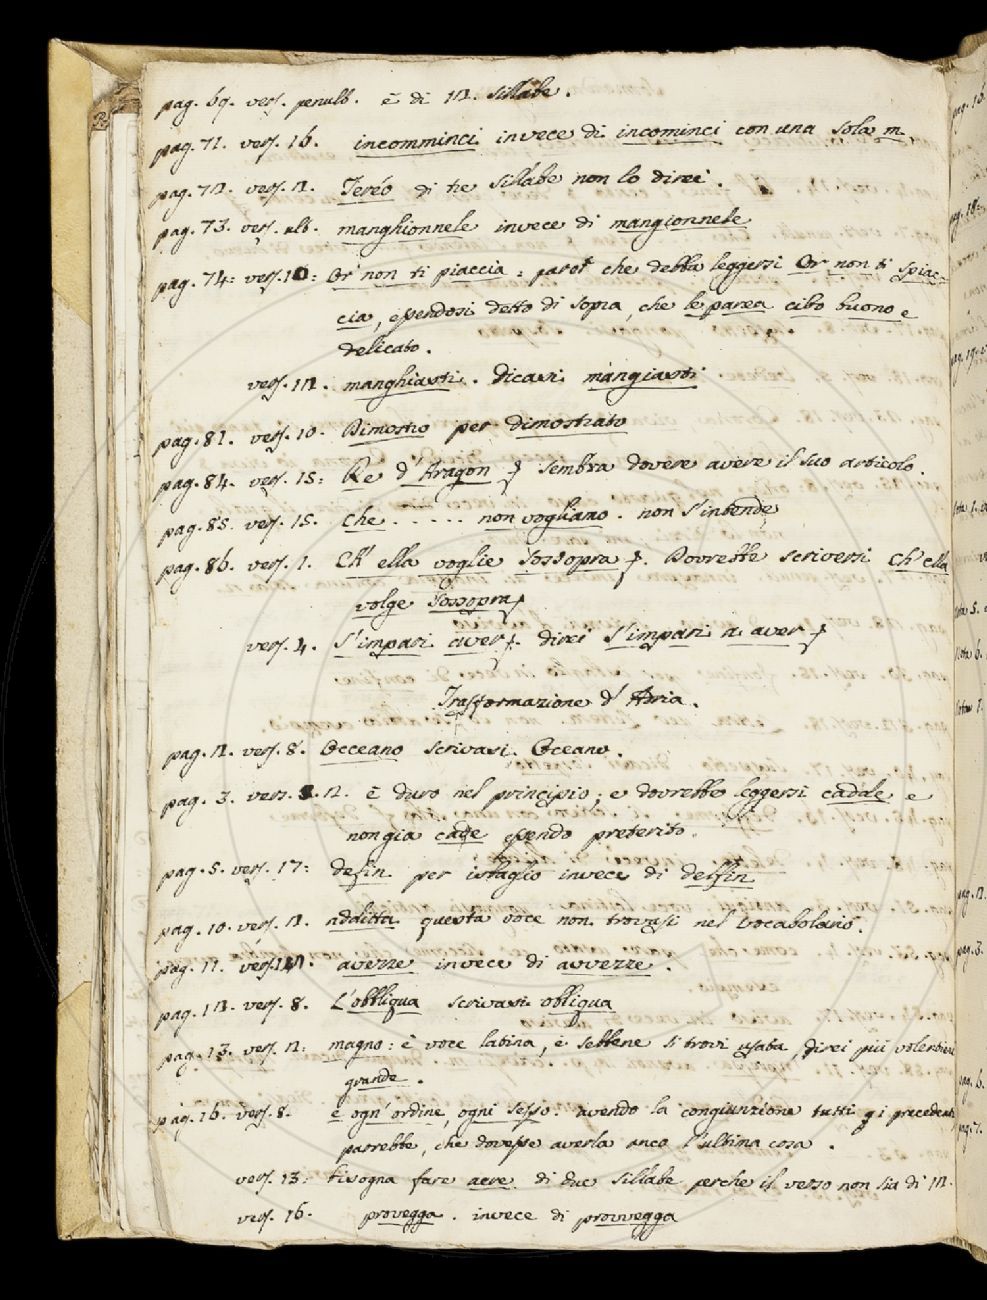 pag. 69. vers. penult. è di 12. sillabe.
pag. 71. vers. 16. incomminci invece di incominci con una sola m.
pag. 72. vers. 2. Teréo di tre sillabe non lo direi.
pag. 73. vers. ult. manghionnele invece di mangionnele
pag. 74: vers. 10: Or non ti piaccia: parmi che debba leggersi Or non ti spiac=
cia, essendosi detto di sopra, che le parea cibo buono e
delicato.
vers. 12. manghiasti. dicasi mangiasti
pag. 81. vers. 10. Dimostro per dimostrato
pag. 84. vers. 15: Re d'Aragon sembra dovere avere il suo articolo.
pag. 85. vers. 15. che ..... non vogliano. non s'intende
pag. 86. vers. 1. Ch'ella voglie sossopra. Dovrebbe scriversi Ch'ella
volge sossopra
vers. 4. S'impari aver. direi s'impari a aver
Trasformazione d'Adria.
pag. 2. vers. 8. Occeano scrivasi Oceano.
pag. 3. vers. 2. è duro nel principio; e dovrebbe leggersi cadde e
non gia cade essendo preterito.
pag. 5. vers. 17: defin per isbaglio invece di delfin
pag. 10. vers. 2. additta questa voce non trovasi nel vocabolario.
pag. 11. vers. 12. averze invece di avvezze.
pag. 12. vers. 8. L'obbliqua scrivasi obliqua
pag. 13. vers. 2: magno: è voce latina, e sebbene si trovi usata, direi più volentieri
grande.
pag. 16. vers. 8. e ogn'ordine, ogni sesso: avendo la congiunzione tutti i precedenti
parrebbe, che dovesse averla anco l'ultima cosa.
vers. 13: bisogna fare aere di due sillabe perche il verso non sia di 12.
vers. 16. provegga. invece di provvegga